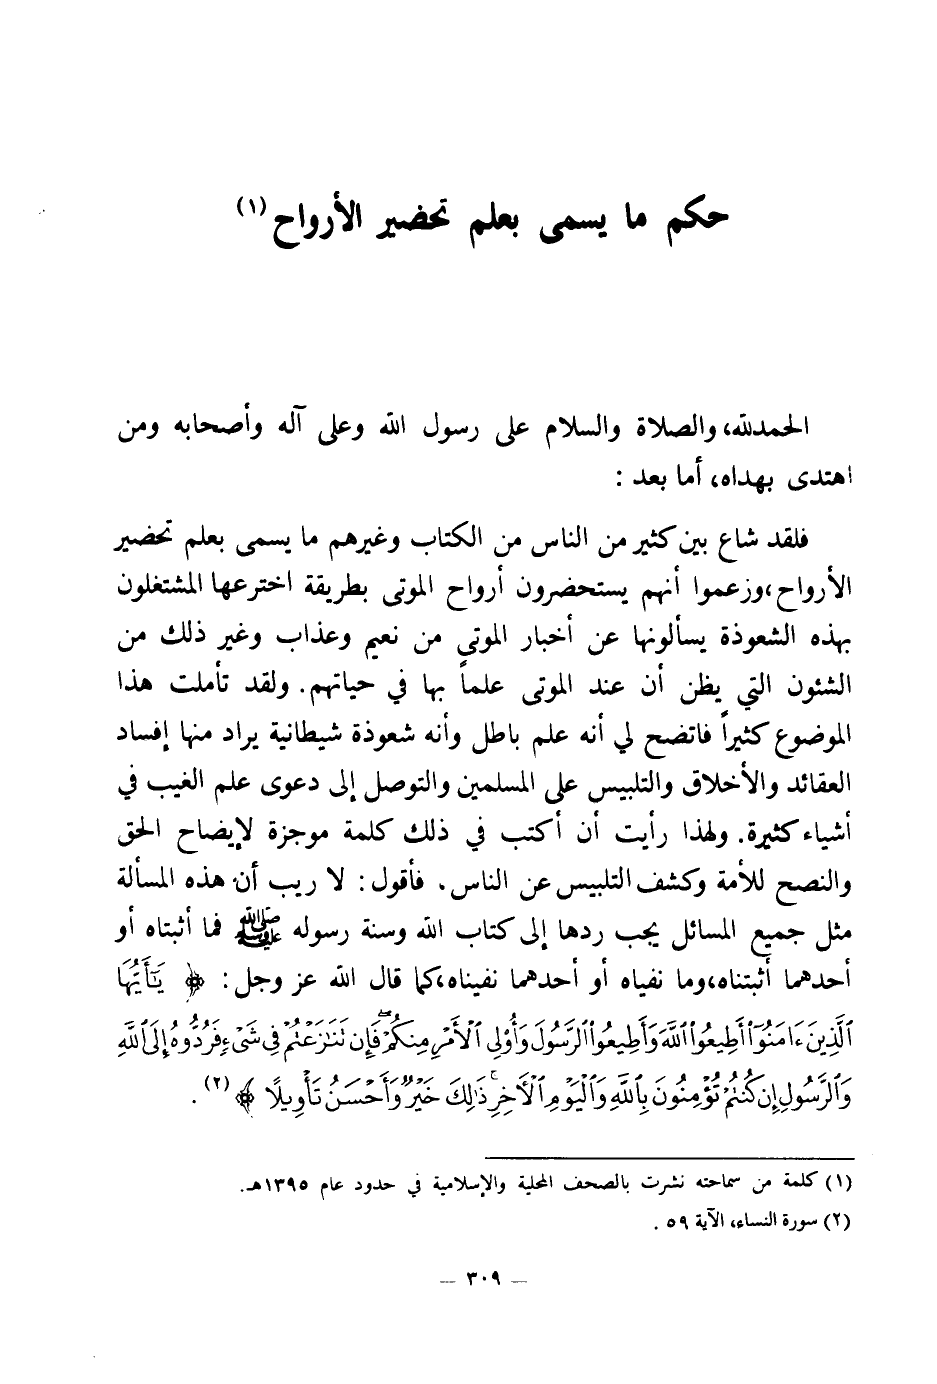 حكم ما يسمى بعلم تحضير الأرواح (١)
الحمدلله، والصلاة والسلام على رسول الله وعلى آله وأصحابه ومن
اهتدى بهداه، أما بعد :
فلقد شاع بين كثير من الناس من الكتاب وغيرهم ما يسمى بعلم تحضير
الأرواح، وزعموا أنهم يستحضرون أرواح الموتى بطريقة اخترعها المشتغلون
بهذه الشعوذة يسألونها عن أخبار الموتى من نعيم وعذاب وغير ذلك من
الشئون التي يظن أن عند الموتى علماً بها في حياتهم. ولقد تأملت هذا
الموضوع كثيراً فاتضح لي أنه علم باطل وأنه شعوذة شيطانية يراد منها إفساد
العقائد والأخلاق والتلبيس على المسلمين والتوصل إلى دعوى علم الغيب في
أشياء كثيرة. ولهذا رأيت أن أكتب في ذلك كلمة موجزة لإيضاح الحق
والنصح للأمة وكشف التلبيس عن الناس. فأقول : لا ريب أن هذه المسألة
مثل جميع المسائل يجب ردها إلى كتاب الله وسنة رسوله ﷺ فما أثبتاه أو
أحدهما أثبتناه، وما نفياه أو أحدهما نفيناه، كما قال الله عز وجل : ﴿ يَٰٓأَيُّهَا
ٱلَّذِينَ ءَامَنُوٓا۟ أَطِيعُوا۟ ٱللَّهَ وَأَطِيعُوا۟ ٱلرَّسُولَ وَأُو۟لِى ٱلْأَمْرِ مِنكُمْ ۖ فَإِن تَنَٰزَعْتُمْ فِى شَىْءٍ فَرُدُّوهُ إِلَى ٱللَّهِ
وَٱلرَّسُولِ إِن كُنتُمْ تُؤْمِنُونَ بِٱللَّهِ وَٱلْيَوْمِ ٱلْءَاخِرِ ۚ ذَٰلِكَ خَيْرٌ وَأَحْسَنُ تَأْوِيلًا ﴾ (٢) .
(١) كلمة من سماحته نشرت بالصحف المحلية والإسلامية في حدود عام ١٣٩٥هـ.
(٢) سورة النساء، الآية ٥٩ .
— ٣٠٩ —